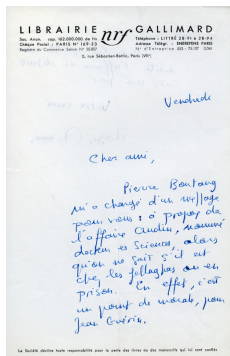 LIBRAIRIE nrf GALLIMARD
Soc. Anon. cap. 162.000.000 de frs
Chèque Postal : PARIS N° 169-33
Registre du Commerce Seine N° 35807
Téléphone : LITTRÉ 28-91 à 28-94
Adresse Télégr. : ENEREFENE PARIS
N° d'Entreprise
5, rue Sébastien-Bottin, Paris (VII°)
Vendredi
Cher ami,
Pierre Boutang
m'a chargé d'un message
pour vous : à propos de
l'affaire Audin, nommé
docteur es Sciences, alors
qu'on ne sait s'il est
chez les fellaghas ou en
prison. En effet, c'est
un point de morale, pour
Jean Guérin.
La Société décline toute responsabilité pour la perte des livres ou des manuscrits qui lui sont confiés